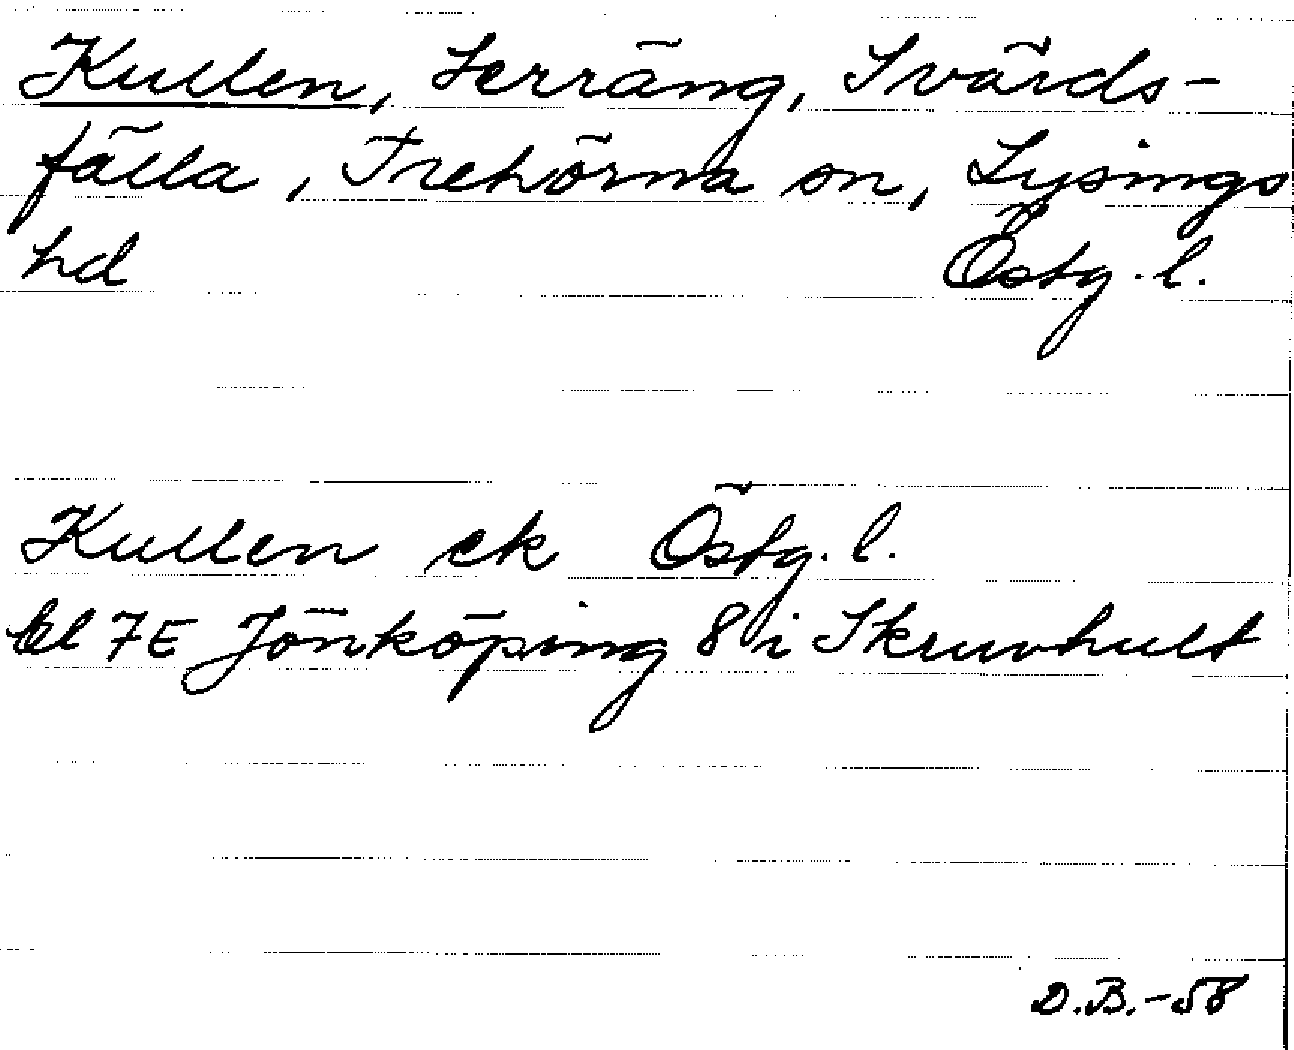 Kullen, terräng, Svärds-
fälla, Trehörna sn, Lysings
hd Östg. l.
Kullen ek Östg. l.
bl 7E Jönköping 8 i Skruvhult
D.B.-58